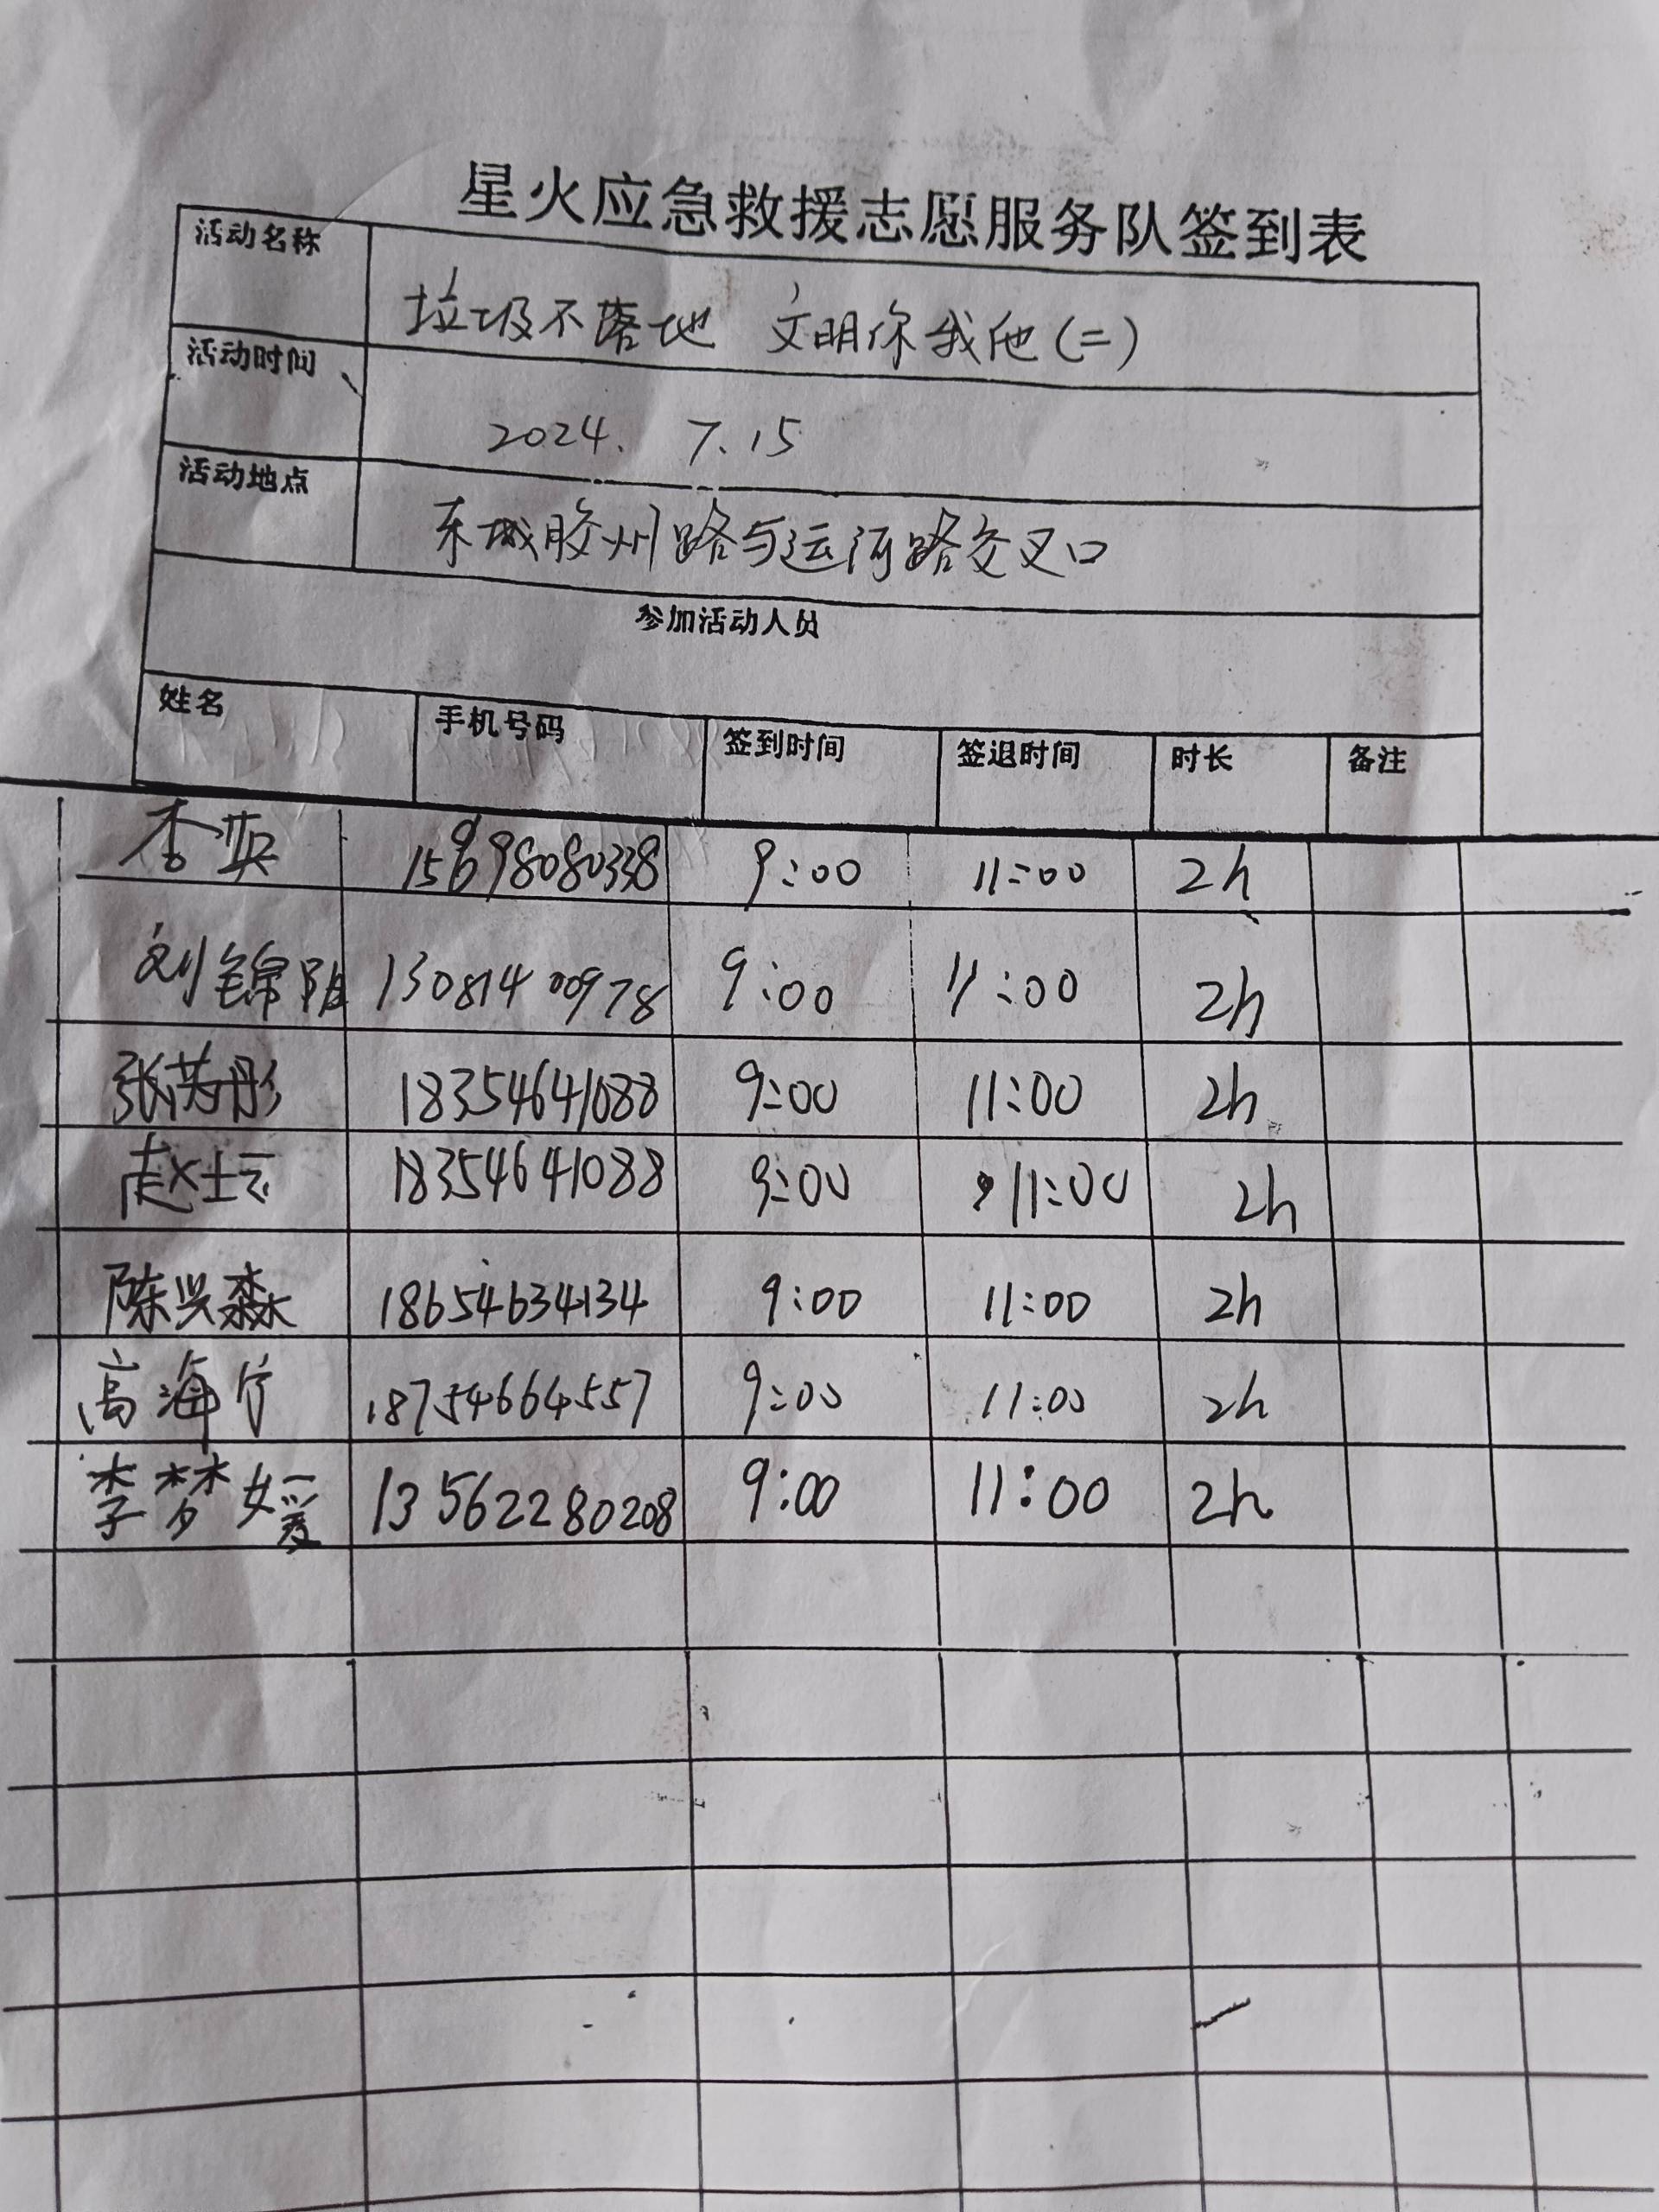 星火应急救援志愿服务队签到表
活动名称 垃圾不落地 文明你我他(二)
活动时间 2024. 7.15
活动地点 东城胶州路与运河路交叉口
参加活动人员
姓名 手机号码 签到时间 签退时间 时长 备注
9:00 11:00 2h
刘锦阳 13081400978 9:00 11:00 2h
18354641088 9:00 11:00 2h
赵士云 18354641088 9:00 11:00 2h
陈兴淼 18654634134 9:00 11:00 2h
高海 18754664557 9:00 11:00 2h
李梦媛 13562280208 9:00 11:00 2h